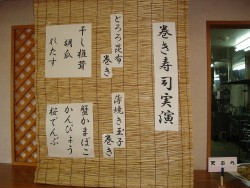 巻き寿司実演
薄焼き玉子
巻き
蟹かまぼこ
かんぴょう
桜でんぶ
とろろ昆布
巻き
干し椎茸
胡瓜
れたす